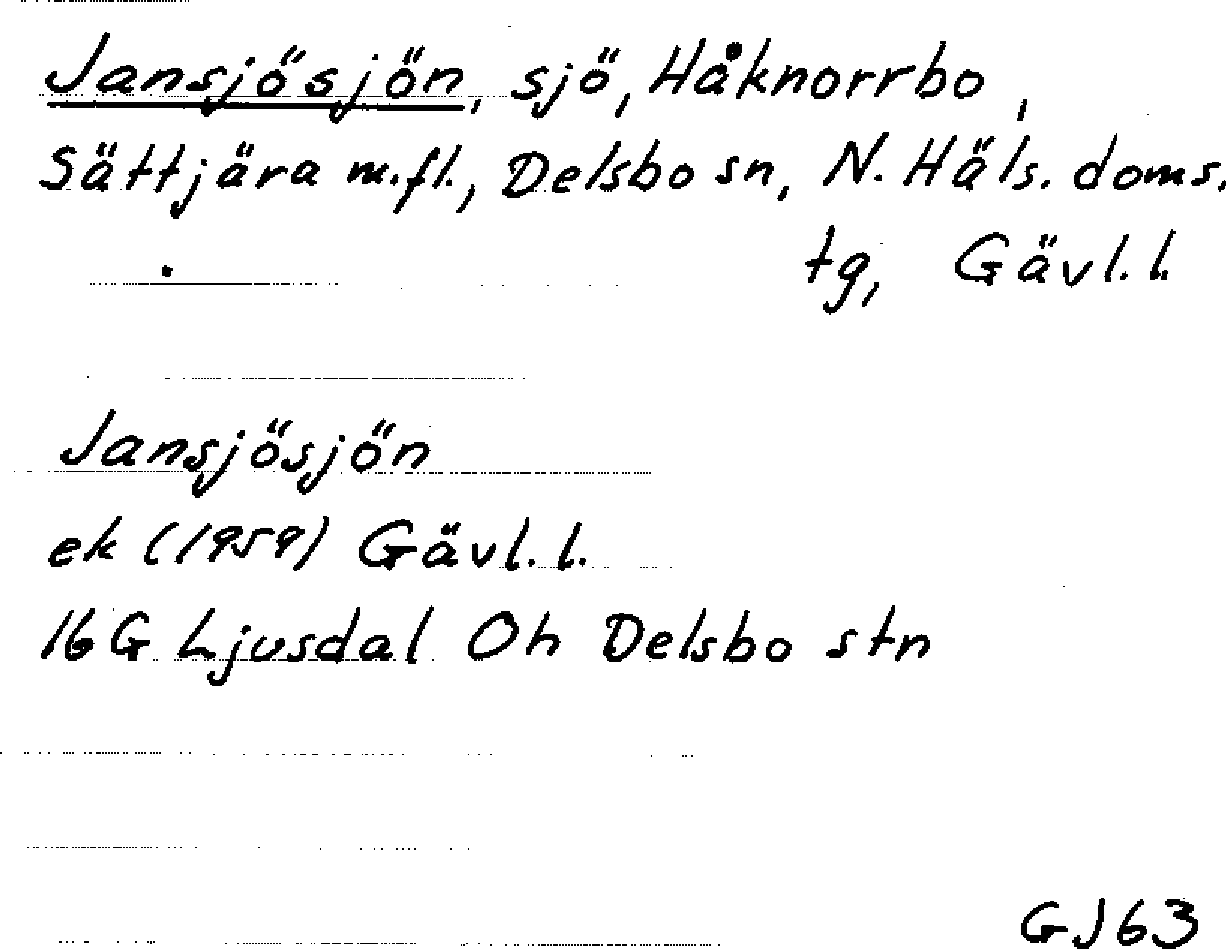 Jansjösjön, sjö, Håknorrbo,
Sättjära m.fl., Delsbo sn, N. Häls. doms.
tg, Gävl. l.
Jansjösjön
ek (1959) Gävl. l.
16G Ljusdal Oh Delsbo stn
GJ63